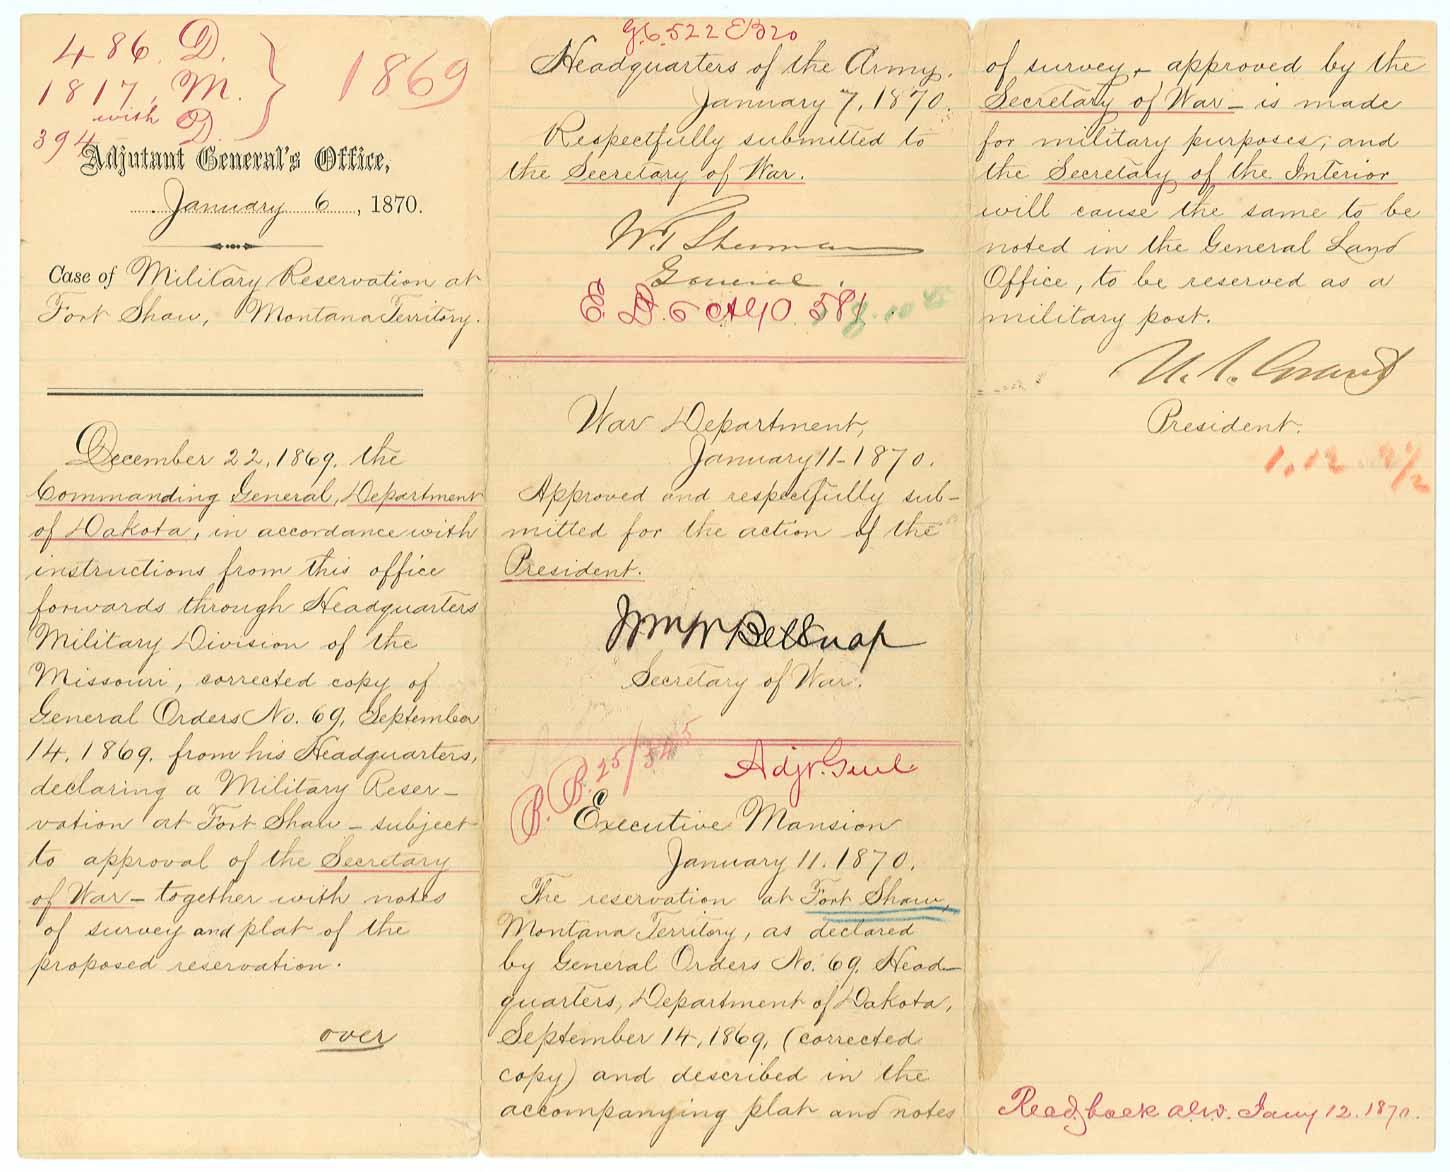 486. D.
1817, M.
with
394 D.
1869
Adjutant General's Office,
January 6, 1870.
Case of Military Reservation at
Fort Shaw, Montana Territory.
December 22, 1869, the
Commanding General, Department
of Dakota, in accordance with
instructions from this office
forwards through Headquarters
Military Division of the
Missouri, corrected copy of
General Orders No. 69, September
14, 1869, from his Headquarters,
declaring a Military Reser-
vation at Fort Shaw - subject
to approval of the Secretary
of War - together with notes
of survey and plat of the
proposed reservation.
over
G.6.522 EB20
Headquarters of the Army.
January 7, 1870.
Respectfully submitted to
the Secretary of War.
W.T. Sherman
General.
War Department,
January 11-1870.
Approved and respectfully sub-
mitted for the action of the
President.
Wm W Belknap
Secretary of War.
B.B. 25/345
Adjt. Genl.
Executive Mansion
January 11. 1870.
The reservation at Fort Shaw,
Montana Territory, as declared
by General Orders No. 69, Head-
quarters, Department of Dakota,
September 14, 1869, (corrected
copy) and described in the
accompanying plat and notes
of survey - approved by the
Secretary of War - is made
for military purposes; and
the Secretary of the Interior
will cause the same to be
noted in the General Land
Office, to be reserved as a
military post.
U.S. Grant
President.
Recd. back Jany 12. 1870.